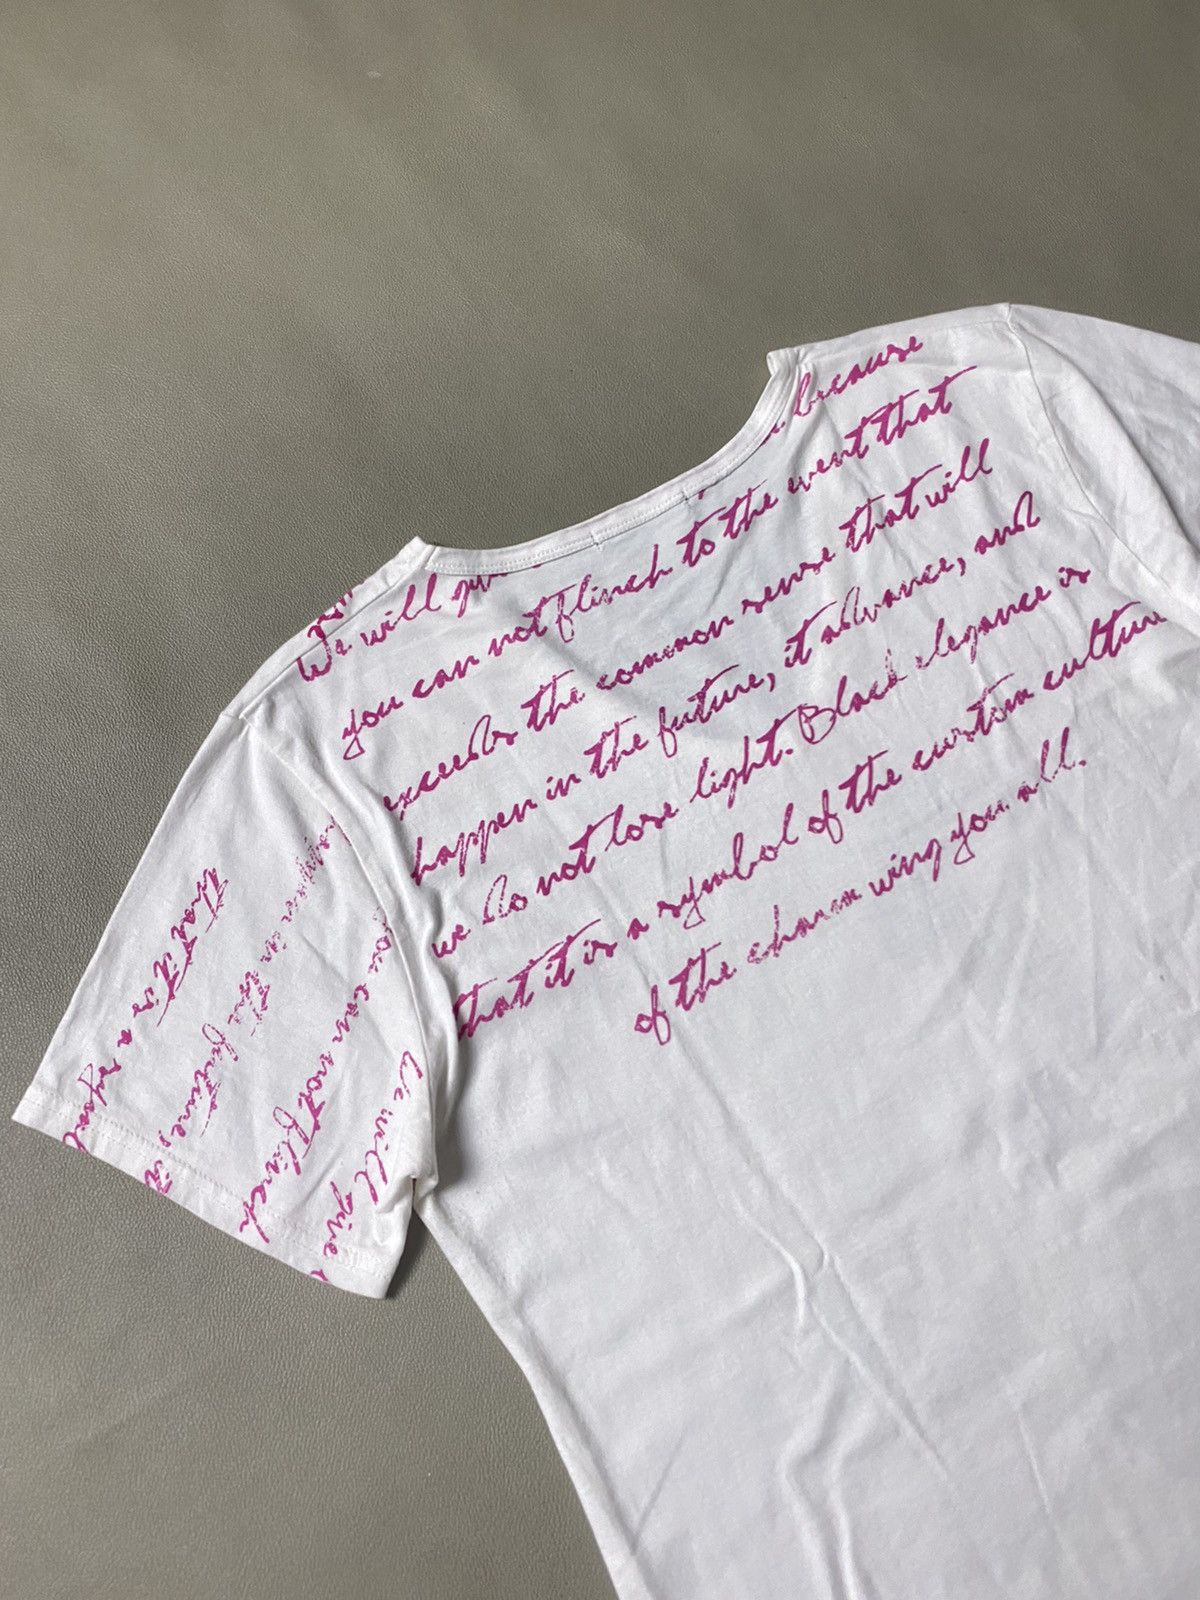 We will because
you can not flinch to the event that
exceeds the common sense that will
happen in the future, it advance, and
we do not lose light. Black elegance is
that it is a symbol of the custom culture
of the charm wing you all.
We will give
you can not flinch
happen in the future, it
that it is a symbol